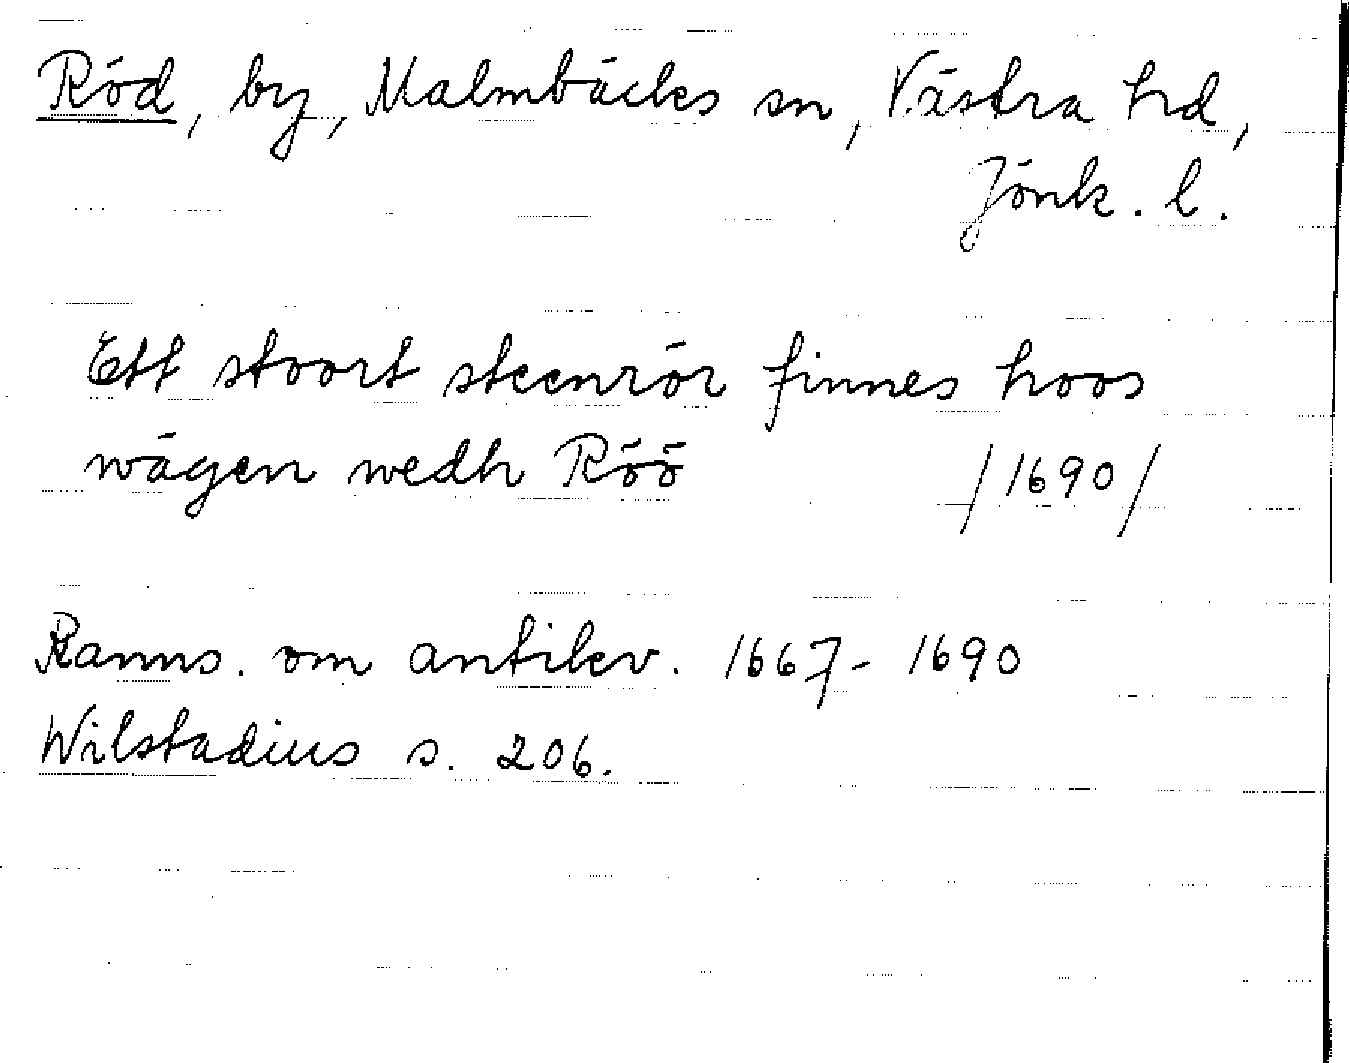 Röd, by, Malmbäcks sn, Västra hd,
Jönk. l.
Ett stoort steenrör finnes hoos
wägen wedh Röö /1690/
Ranns. om antikv. 1667-1690
Wilstadius s. 206.